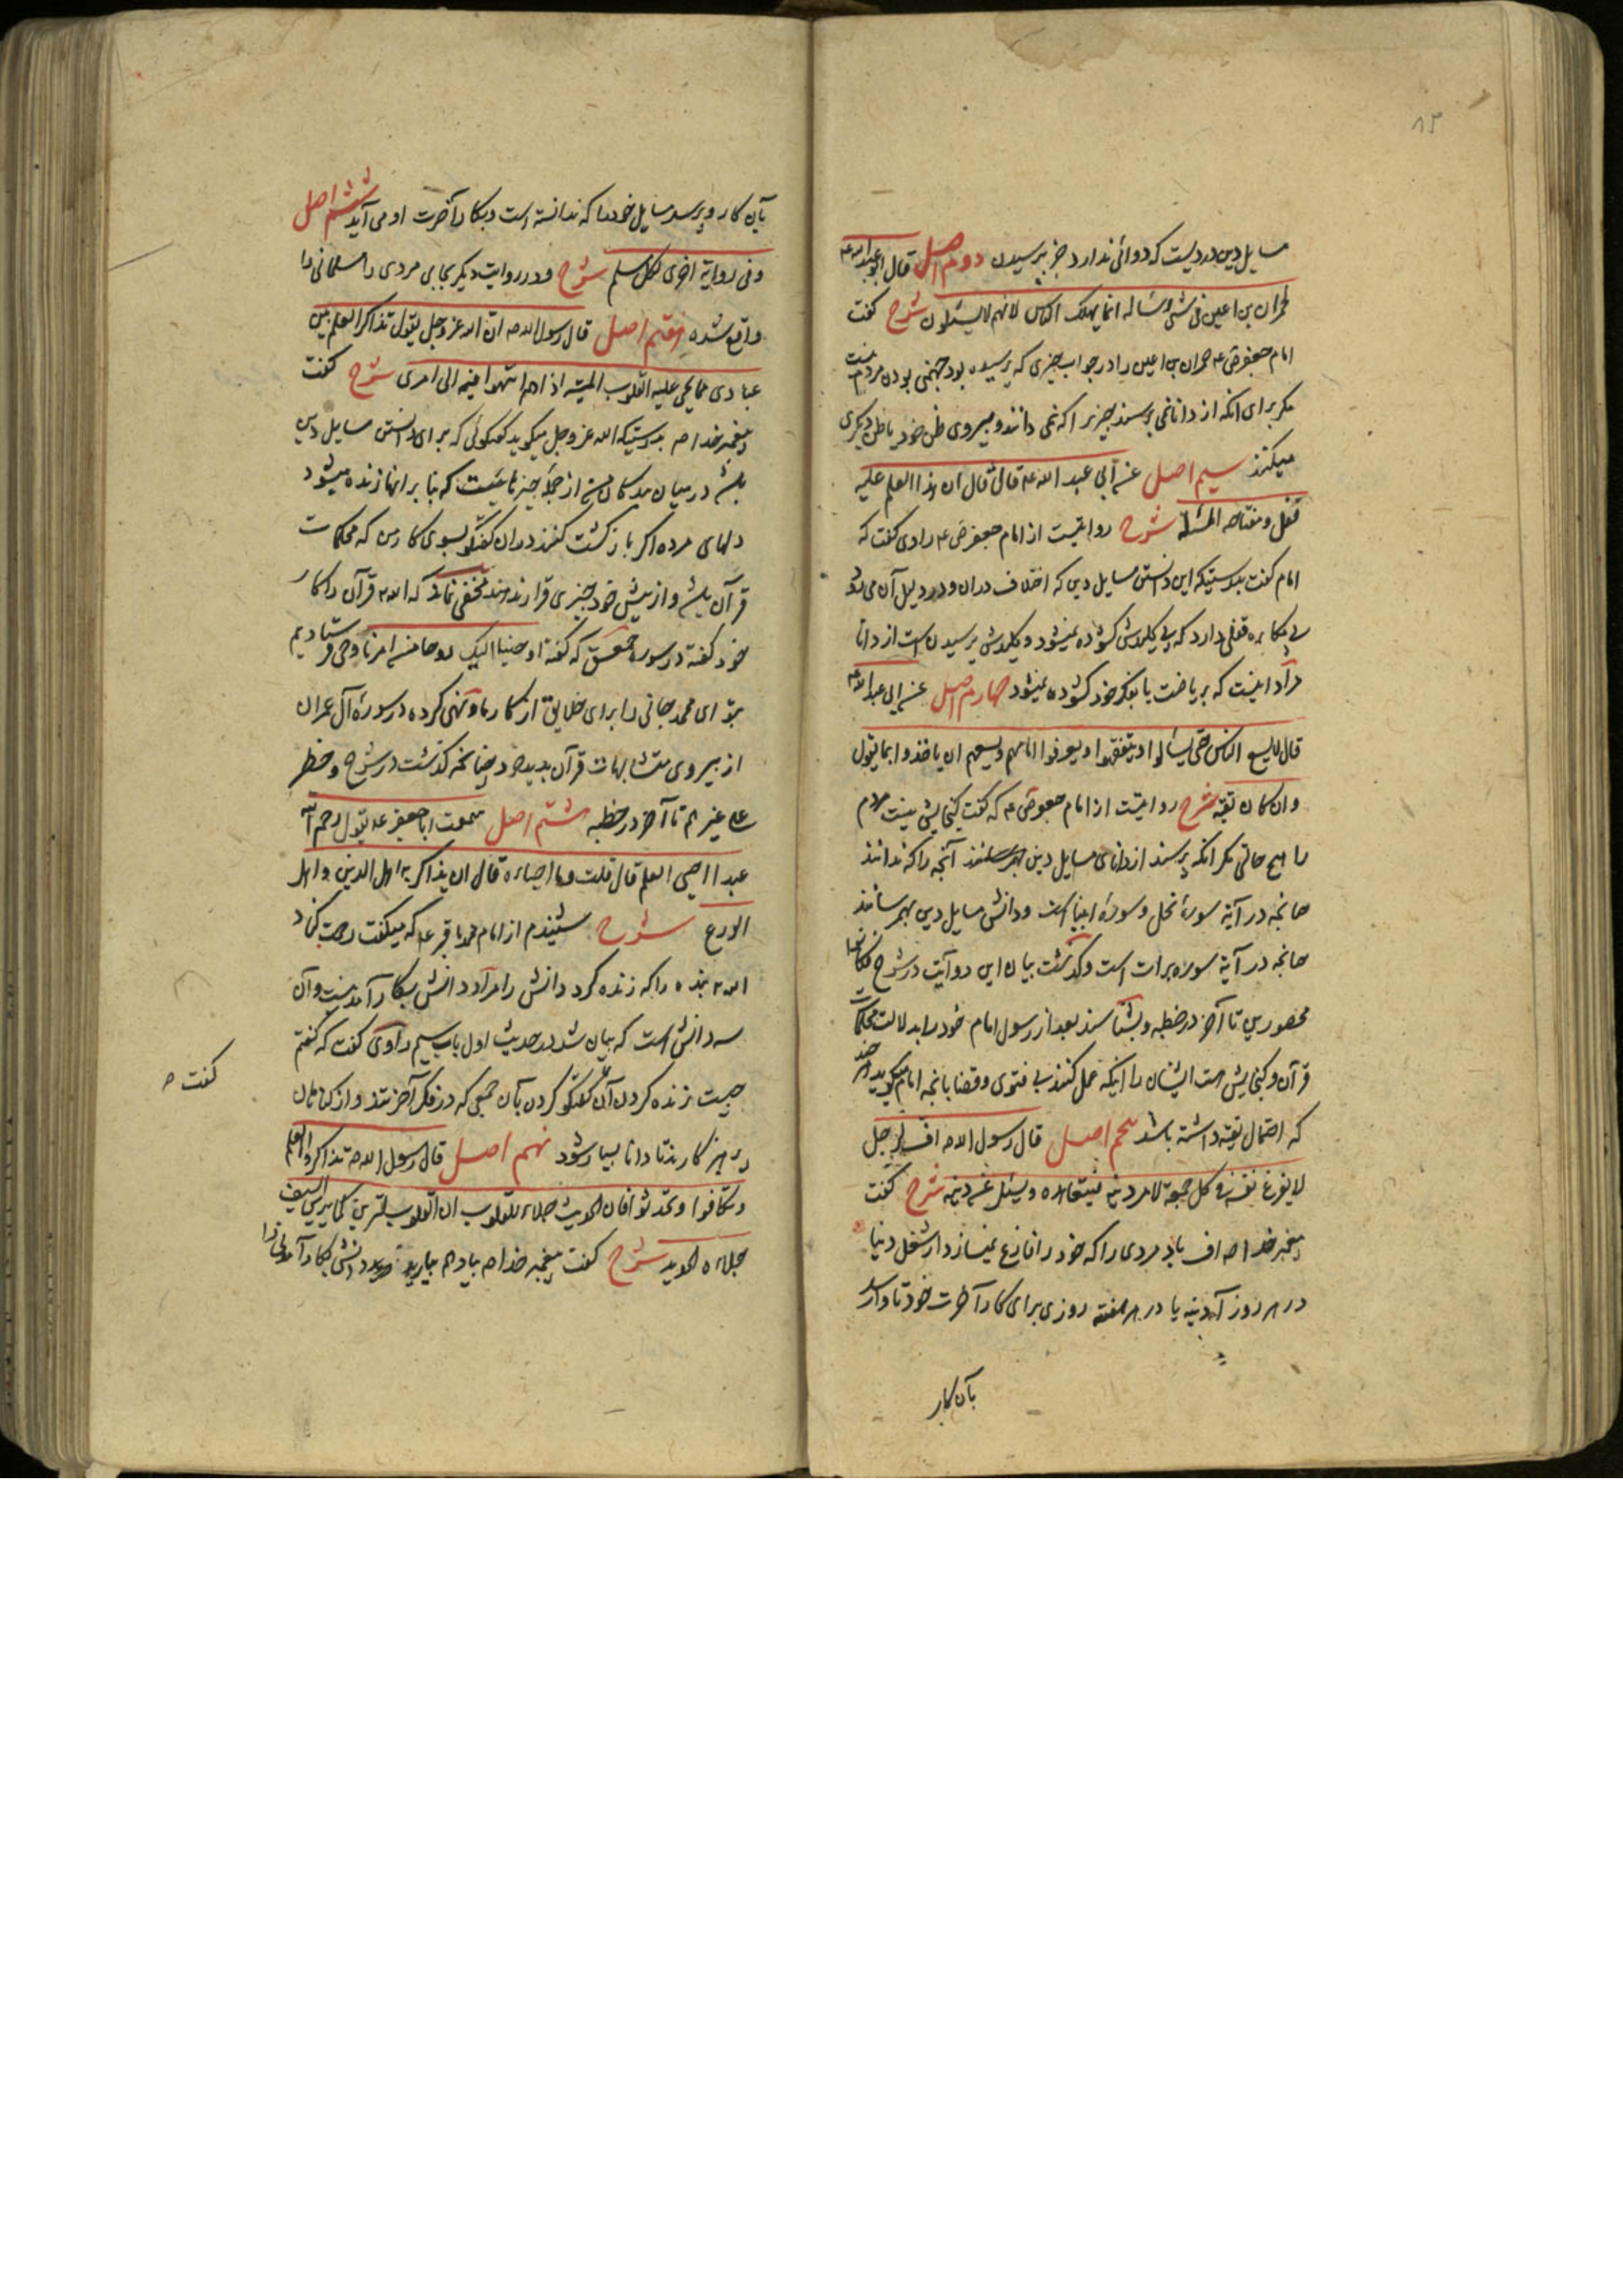 ۸۵
مسایل دین دردیست که دوائی ندارد جز پرسیدن دوم اصل قال ابو عبد الله ع
لحمران بن اعین فی شئ وساله انما یهلک الناس لانهم لا یسئلون شرح گفت
امام جعفر ص ع حمران بن اعین را در جواب چیزی که پرسیده بود جهنمی بودن مردم نیست
مگر برای انکه از دانا نمی پرسند چیزیرا که نمی دانند و پیروی ظن خود یا ظن دیگری
میکنند سیم اصل عن ابی عبد الله ع قال قال ان هذا العلم علیه
قفل ومفتاحه المسئلة شرح روایتست از امام جعفر ص ع راوی گفت که
امام گفت بدرستیکه این دانستن مسایل دین که اختلاف در ان و در دلیل آن می رود
بی مکابره قفلی دارد که بی کلیدش گشوده نمیشود و کلیدش پرسیدن است از دانا
مراد اینست که بریاضت یا بفکر خود گشوده نمیشود چهارم اصل عن ابی عبد الله ع
قال لا یسع الناس حتی یسألوا او یتفقهوا او یعرفوا امامهم ویسعهم ان یاخذوا بما یقول
وان کان تقیة شرح روایتست از امام جعفر ص ع که گفت گنجایش نیست مردم
را هیچ حالتی مگر انکه پرسند از دانای مسایل دین آنچه را که ندانند
چنانچه در آیة سورۀ نحل و سورۀ انبیا است و دانش مسایل دین بهم رسانند
چنانچه در آیة سوره برات است و گذشت بیان این دو آیت در شرح
محصورین تا آخر در خطبه و بشناسند بعد از رسول امام خود را بدلالت محکمات
قرآن و گنجایش هست ایشان را اینکه عمل کنند بی فتوی و قضا بانچه امام میگوید هر چند
که احتمال تقیه داشته باشد پنجم اصل قال رسول الله ص اف لرجل
لا یفرغ نفسه فی کل جمعة لامر دینه فیتعاهده ویسئل عن دینه شرح گفت
پیغمبر خدا ص اف باد مردی را که خود را فارغ نمیسازد از شغل دنیا
در هر روز آدینه یا در هر هفته روزی برای کار آخرت خود تا وارسد
بآن کار
بآن کار و پرسد مسایل خود را که ندانسته است و بکار آخرت او می آید ششم اصل
وفی روایة اخری لکل مسلم شرح و در روایت دیگر بجای مردی را مسلمانی را
واقع شده هفتم اصل قال رسول الله ص ان الله عز وجل یقول تذاکر العلم بین
عبادی مما یحی علیه القلوب المیتة اذا هم انتهوا فیه الی امری شرح گفت
پیغمبر خدا ص بدرستیکه الله عز وجل میگوید گفتگوئی که برای دانستن مسایل دین
باشد در میان بندگان من از جمله چیزهائیست که بنا بر انها زنده میشود
دلهای مرده اگر بازگشت کنند در ان گفتگو بسوی کار من که محکمات
قرآن باشد و از پیش خود چیزی قرار ندهند مخفی نماند که الله قرآن را کار
خود گفته در سوره حمعسق که گفته اوحینا الیک روحا من امرنا وحی فرستادیم
بتو ای محمد جانی را برای خلایق از کار ما و نهی کرده در سورۀ آل عمران
از پیروی متشابهات قرآن بدید خود چنانچه گذشت در شرح وحظر
علی غیرهم تا آخر در خطبه هشتم اصل سمعت ابا جعفر ع یقول رحم الله
عبدا احیی العلم قال قلت وما احیاءه قال ان یذاکر به اهل الدین واهل
الورع شرح شنیدم از امام محمد باقر ع که میگفت رحمت کناد
الله بنده را که زنده کرد دانش را مراد دانش بکار آمدنیست و آن
سه دانش است که بیان شد در حدیث اول باب سیم راوی گفت که گفتم
چیست زنده کردن آن گفتگو کردن بآن جمعی که در فکر آخرتند و از گناهان
پرهیزکارند تا دانا بسیار شود نهم اصل قال رسول الله ص تذاکروا العلم
وتلاقوا وتحدثوا فان الحدیث جلاء للقلوب ان القلوب لترین کما یرین السیف
جلاءه الحدید شرح گفت پیغمبر خدا ص بیاد هم بیارید دانش بکار آمدنی را
گفت ص